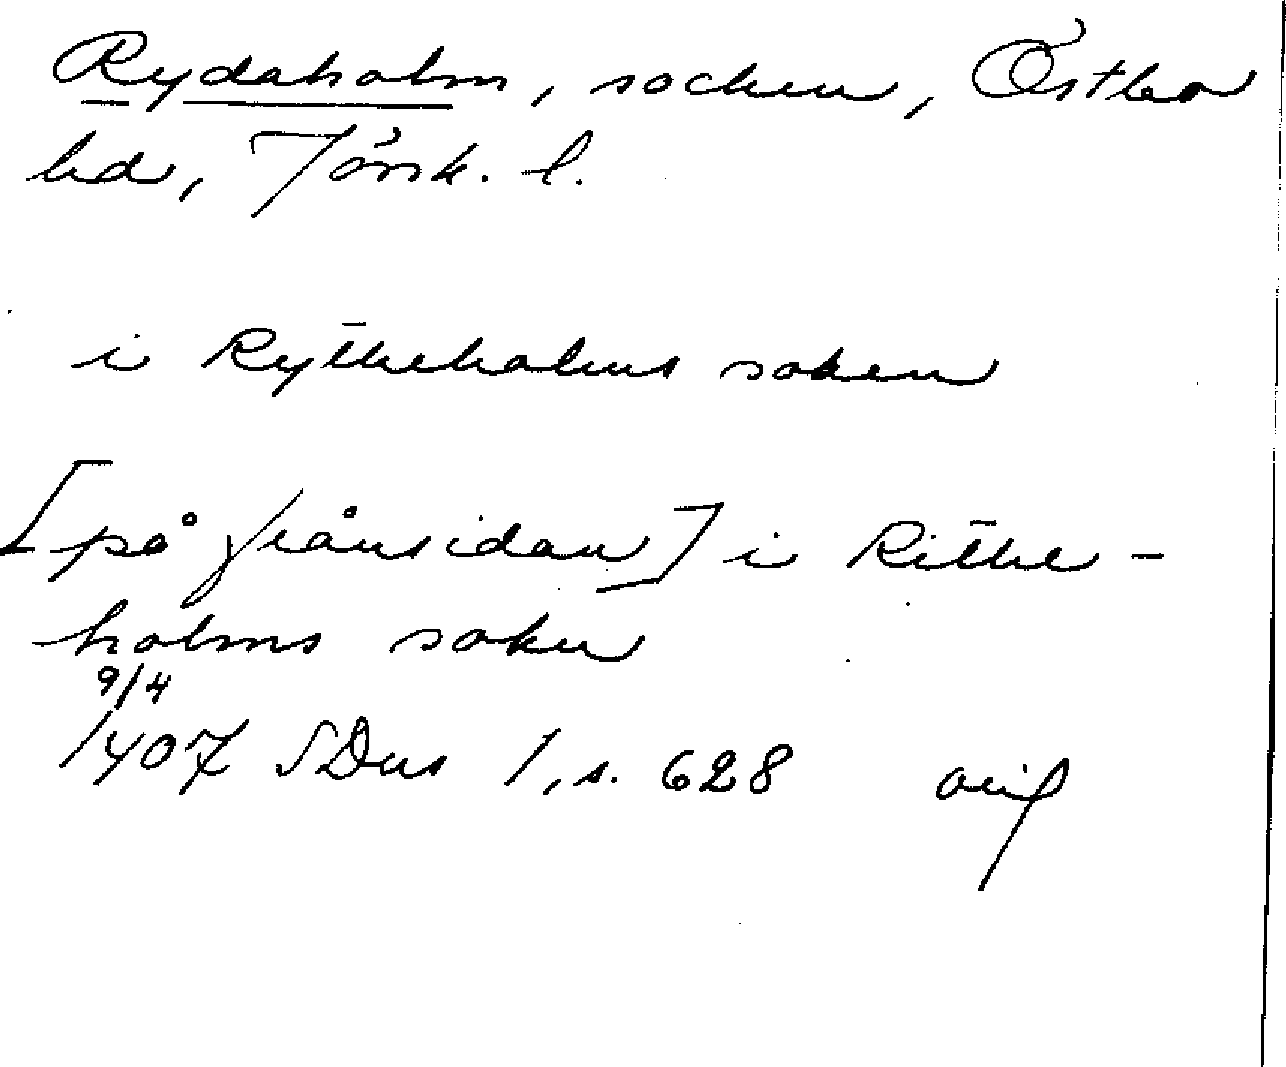 Rydaholm, socken, Östbo
hd, Jönk. l.
i Rytheholms soken
[på frånsidan] i Rithe-
holms soken
9/4
1407 SDns 1, s. 628 orig